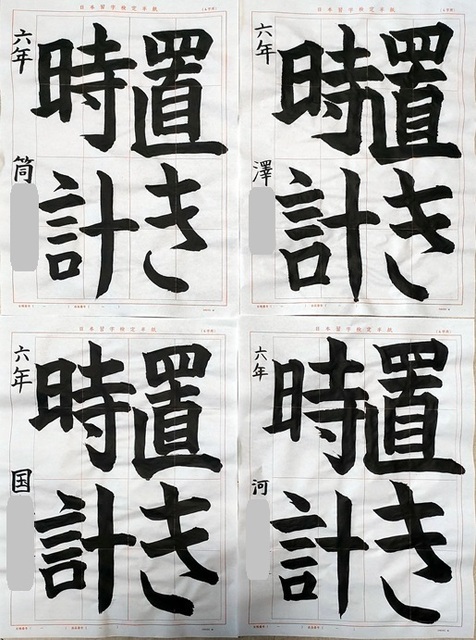 日本習字検定半紙
置き
時計
六年
筒
日本習字検定半紙
置き
時計
六年
澤
日本習字検定半紙
置き
時計
六年
国
日本習字検定半紙
置き
時計
六年
河